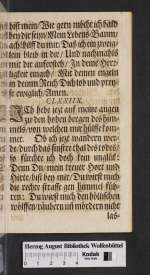 hoff mein/ Wie gern möcht ich bald
bey dir seyn/ Mein Lebens-Baum/
ach schaff du mir: Daß ich ein zweig-
lein bleib in dir/ Und nachmahls
mit dir auferſteh/ Zu deine Herr-
ligkeit eingeh/ Mit deinen engeln
in deinem Reich Dich lob und preiſe
ewiglich/ Amen.
CLXXIIX.
ICh hebe jezt auf meine augen
zu den hohen bergen des him-
mels/ von welchen mir hülffe kom-
met. Ob ich jezt wandern wer-
de/ durch das finſtre thal des todes/
ſo fürchte ich doch kein unglük:
Denn Du/ mein treuer Hort und
Herr/ biſt bey mir; Du wirſt mich
die rechte ſtraſſe gen himmel füh-
ren: Du wirſt mich den hölliſchen
wölffen/ räubern uñ mördern nicht
laſ-
Herzog August Bibliothek Wolfenbüttel
Kodak